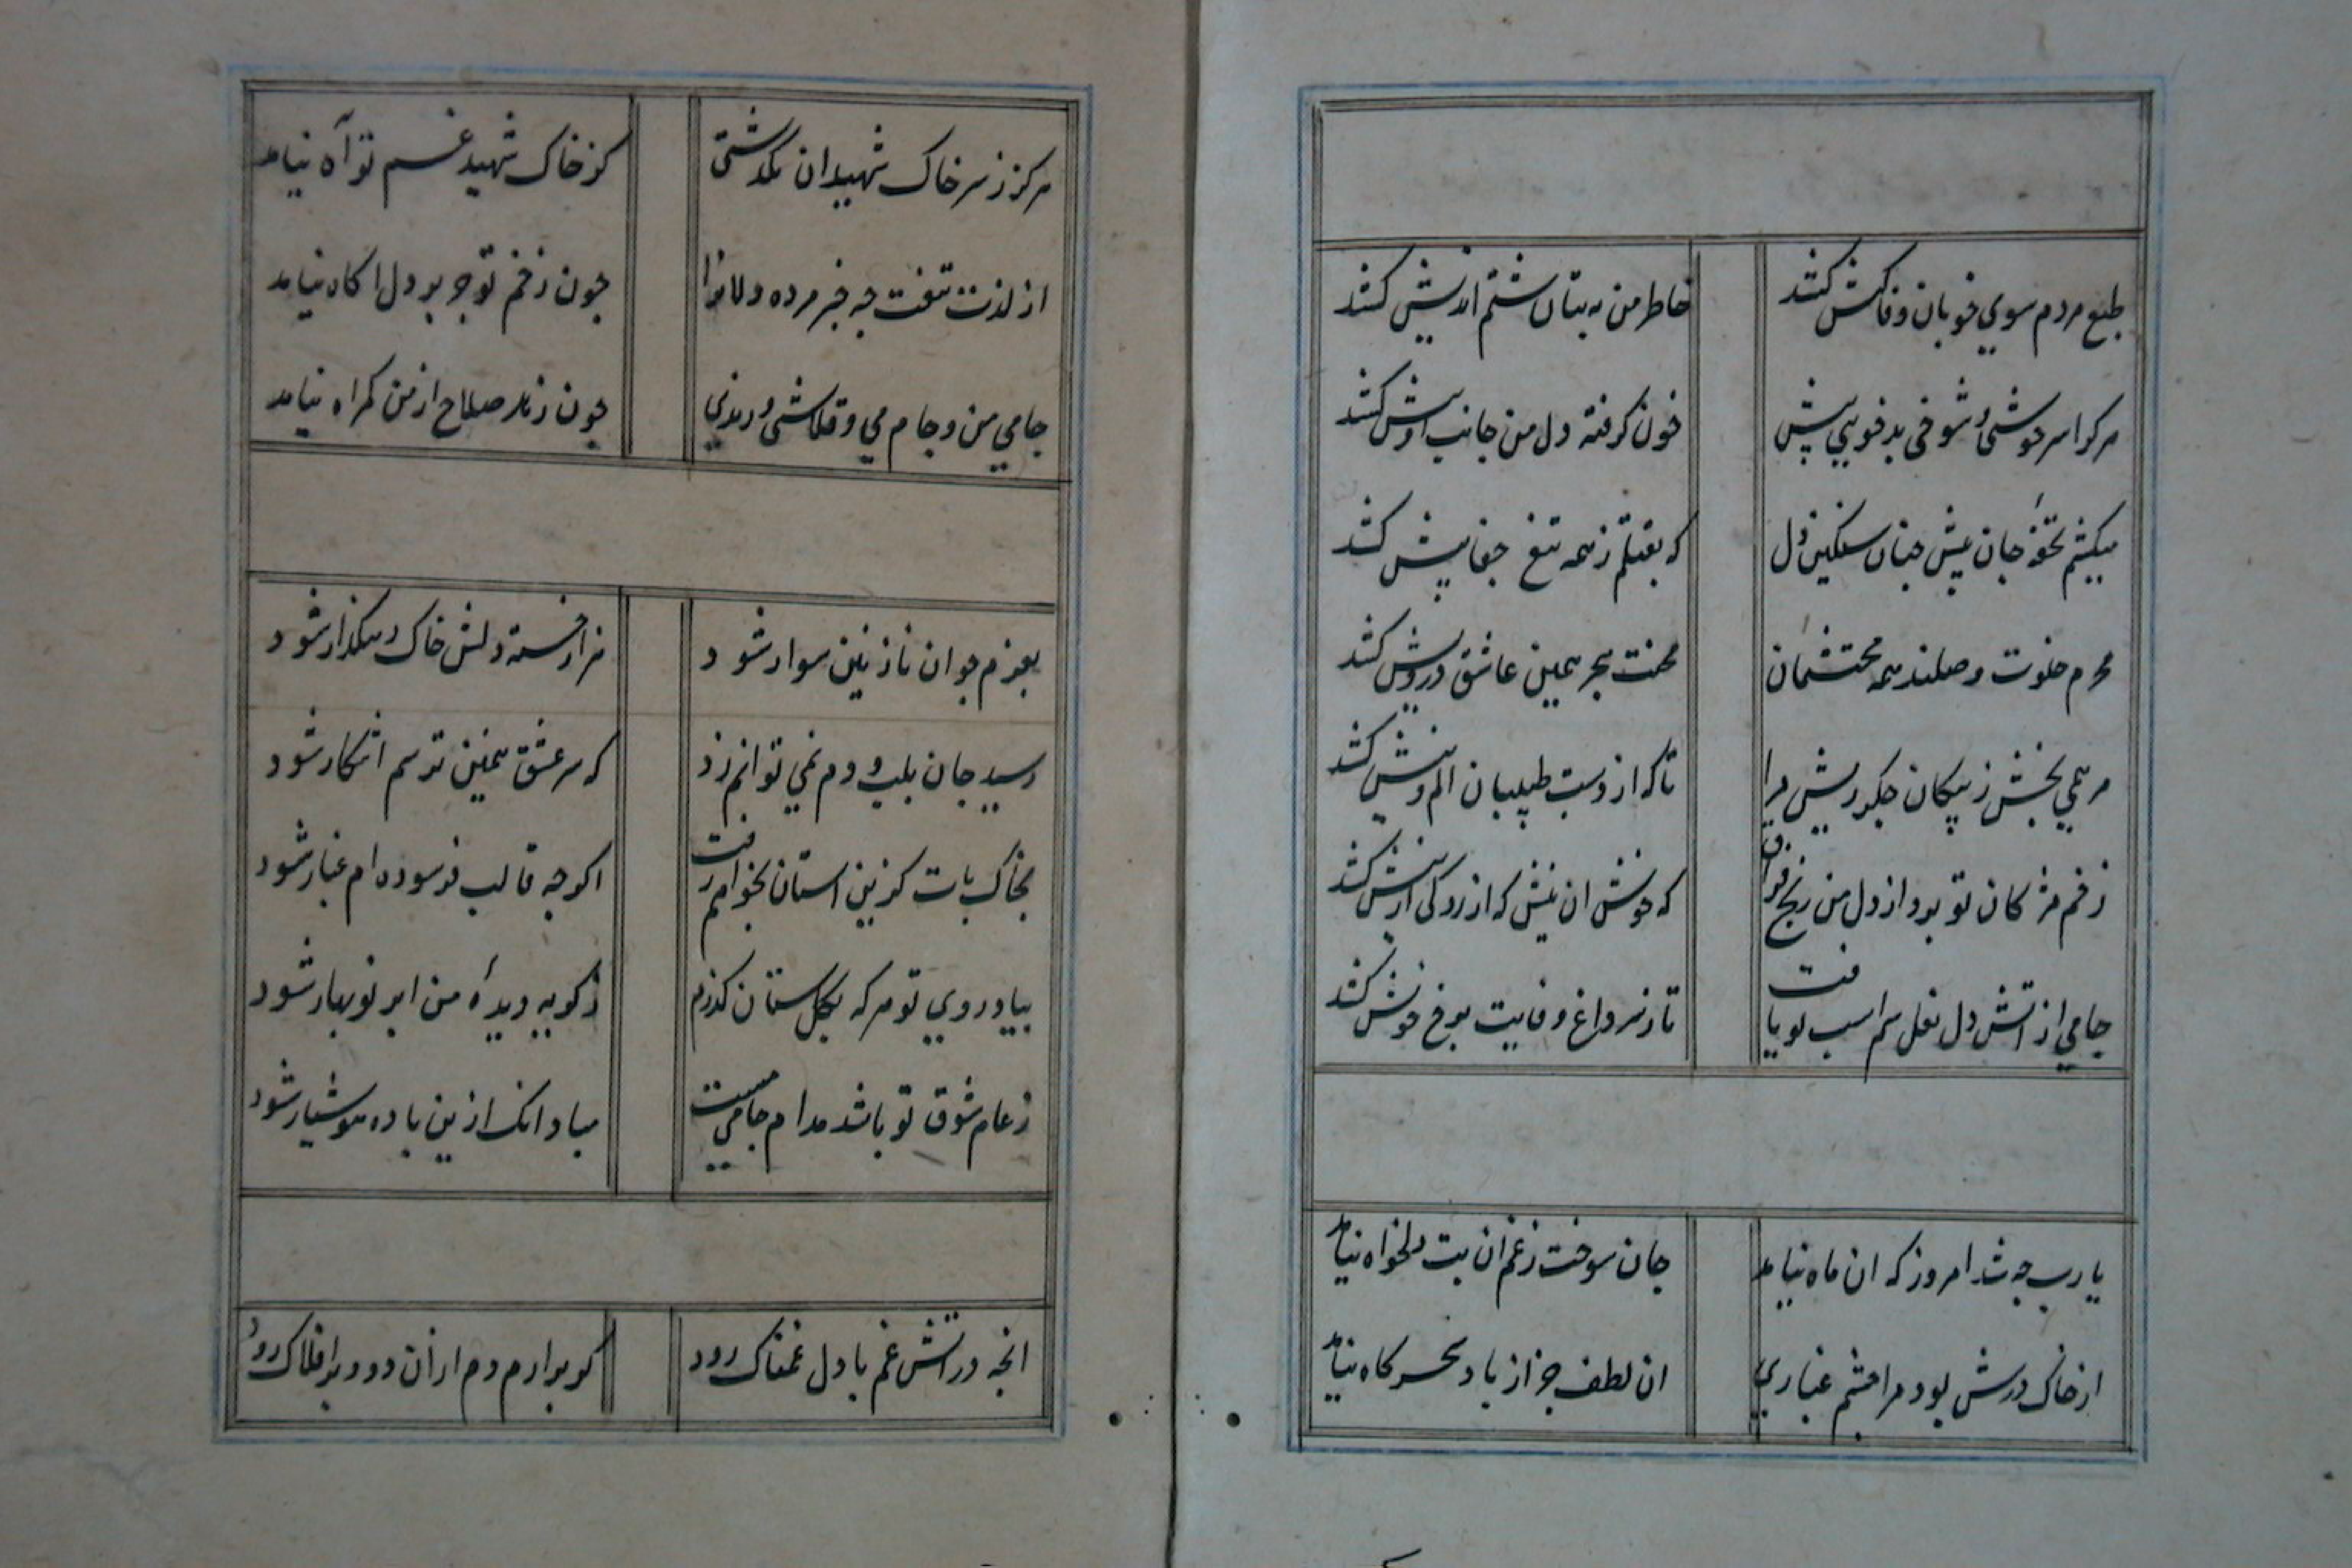 طبع مردم سوی خوبان وفاکیش کشد
خاطر من به بتان ستم اندیش کشد
هرکرا سرخوشی و شوخی بدخویی پیش
خون گرفته دل من جانب اویش کشد
میکشم تحفهٔ جان پیش چنان سنکین دل
که بقتلم ز همه تیغ جفا پیش کشد
محرم خلوت وصلند همه محتشمان
محنت هجر همین عاشق درویش کشد
مرهمی بخش ز پیکان جکر ریش مرا
تا که از دست طبیبان الم نیش کشد
زخم مژکان تو برد از دل من رنج فراق
که خوش ان نیش که از رک
جامی از اتش دل نعل سم اسب تو یافت
تا ز سر داغ وفایت برخ خویش کشد
یارب چه شد امروز که ان ماه نیامد
جان سوخت ز غم ان بت دلخواه نیامد
از خاک درش بود مرا چشم غباری
ان لطف جز از باد سحرکاه نیامد
هرکز ز سر خاک شهیدان نکذشتی
کز خاک شهید غم تو آه نیامد
از لذت تیغت چه خبر مرده دلانرا
چون زخم تو جز بر دل اکاه نیامد
جامی من و جام می و قلاشی و رندی
چون زهد صلاح از من کمراه نیامد
بعزم جوان نازنین سوار شود
هزار خسته دلش خاک رهکذار شود
رسید جان بلب و دم نمی توانم زد
که سر عشق همین ترسم اشکار شود
بخاک پات کزین استان نخواهم رفت
اکرچه قالب فرسوده ام غبار شود
بیاد روی تو هرکه بکلستان کذرم
ز کریه دیدهٔ من ابر نوبهار شود
ز جام شوق تو باشد مدام جامی مست
مباد انک ازین باده هوشیار شود
انچه در اتش غم با دل غمناک رود
کر برارم دم ازان دود بر افلاک رود